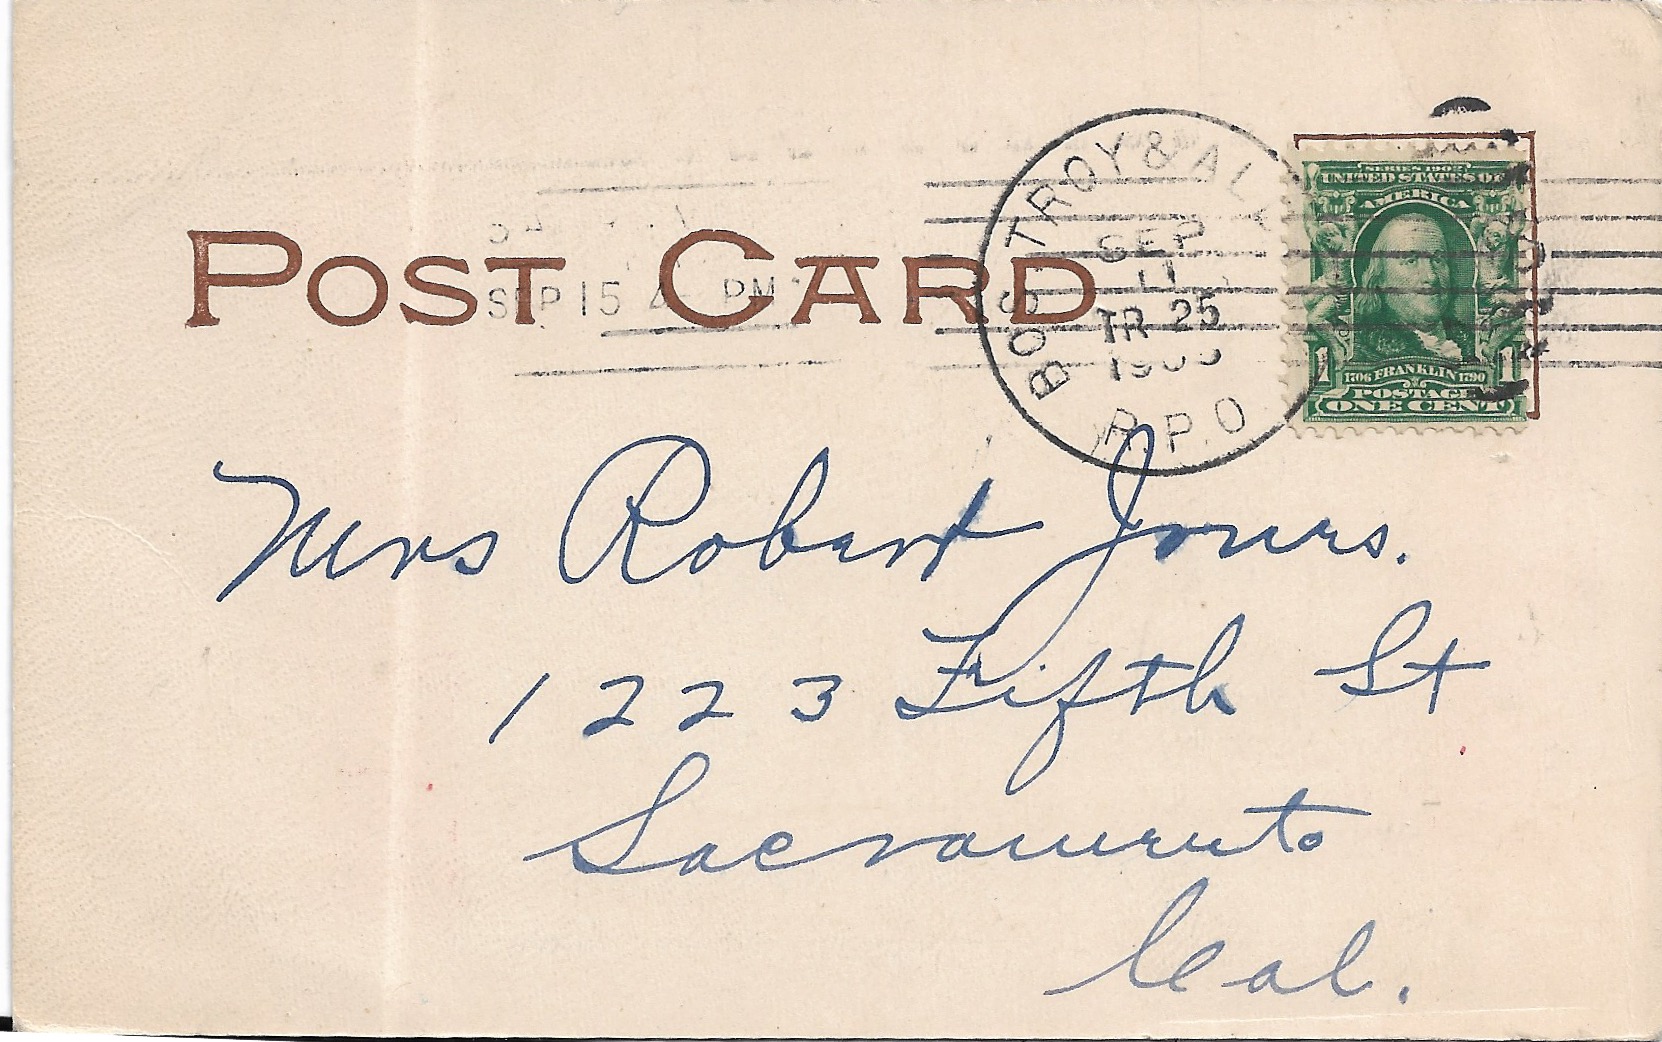 POST CARD
SEP 15 4 - PM
BOS. TROY & ALY
SEP
11
TR 25
R.P.O
SERIES 1902
UNITED STATES OF
AMERICA
1 1706 FRANKLIN 1790 1
POSTAGE
ONE CENT
Mrs Robert Jones.
1223 Fifth St
Sacramento
Cal.